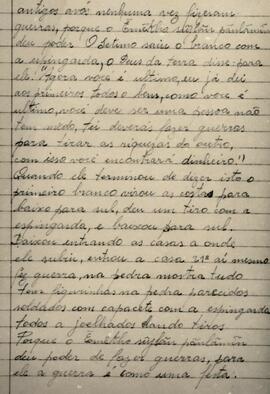 antigos avós nenhuma vez fizeram
guerras, porque o Emëkho
deu poder. O Setimo saiu o branco com
a espingarda, o Deus da terra disse para
ele! Agora você é ultimo, eu já dei
aos primeiros todos o bens, como você é
ultimo, você deve ser uma pessoa não
tem medo, deverás fazer guerras
para tirar as riquezas do outro,
com isso você encontrará dinheiro!!
Quando ele terminou de dizer isto o
primeiro branco virou as costas para
baixo para sul, deu um tiro com a
espingarda, e baixou para sul.
Baixou entrando as casas a onde
ele subiu, entrou a casa 21ª aí mesmo
fez guerra, na pedra mostra tudo
Tem figurinhas na pedra parecidos
soldados com capacete com a espingarda
todos a joelhados dando tiros
Porque o Emëkho
deu poder de fazer guerras, para
ele a guerra é como uma festa.